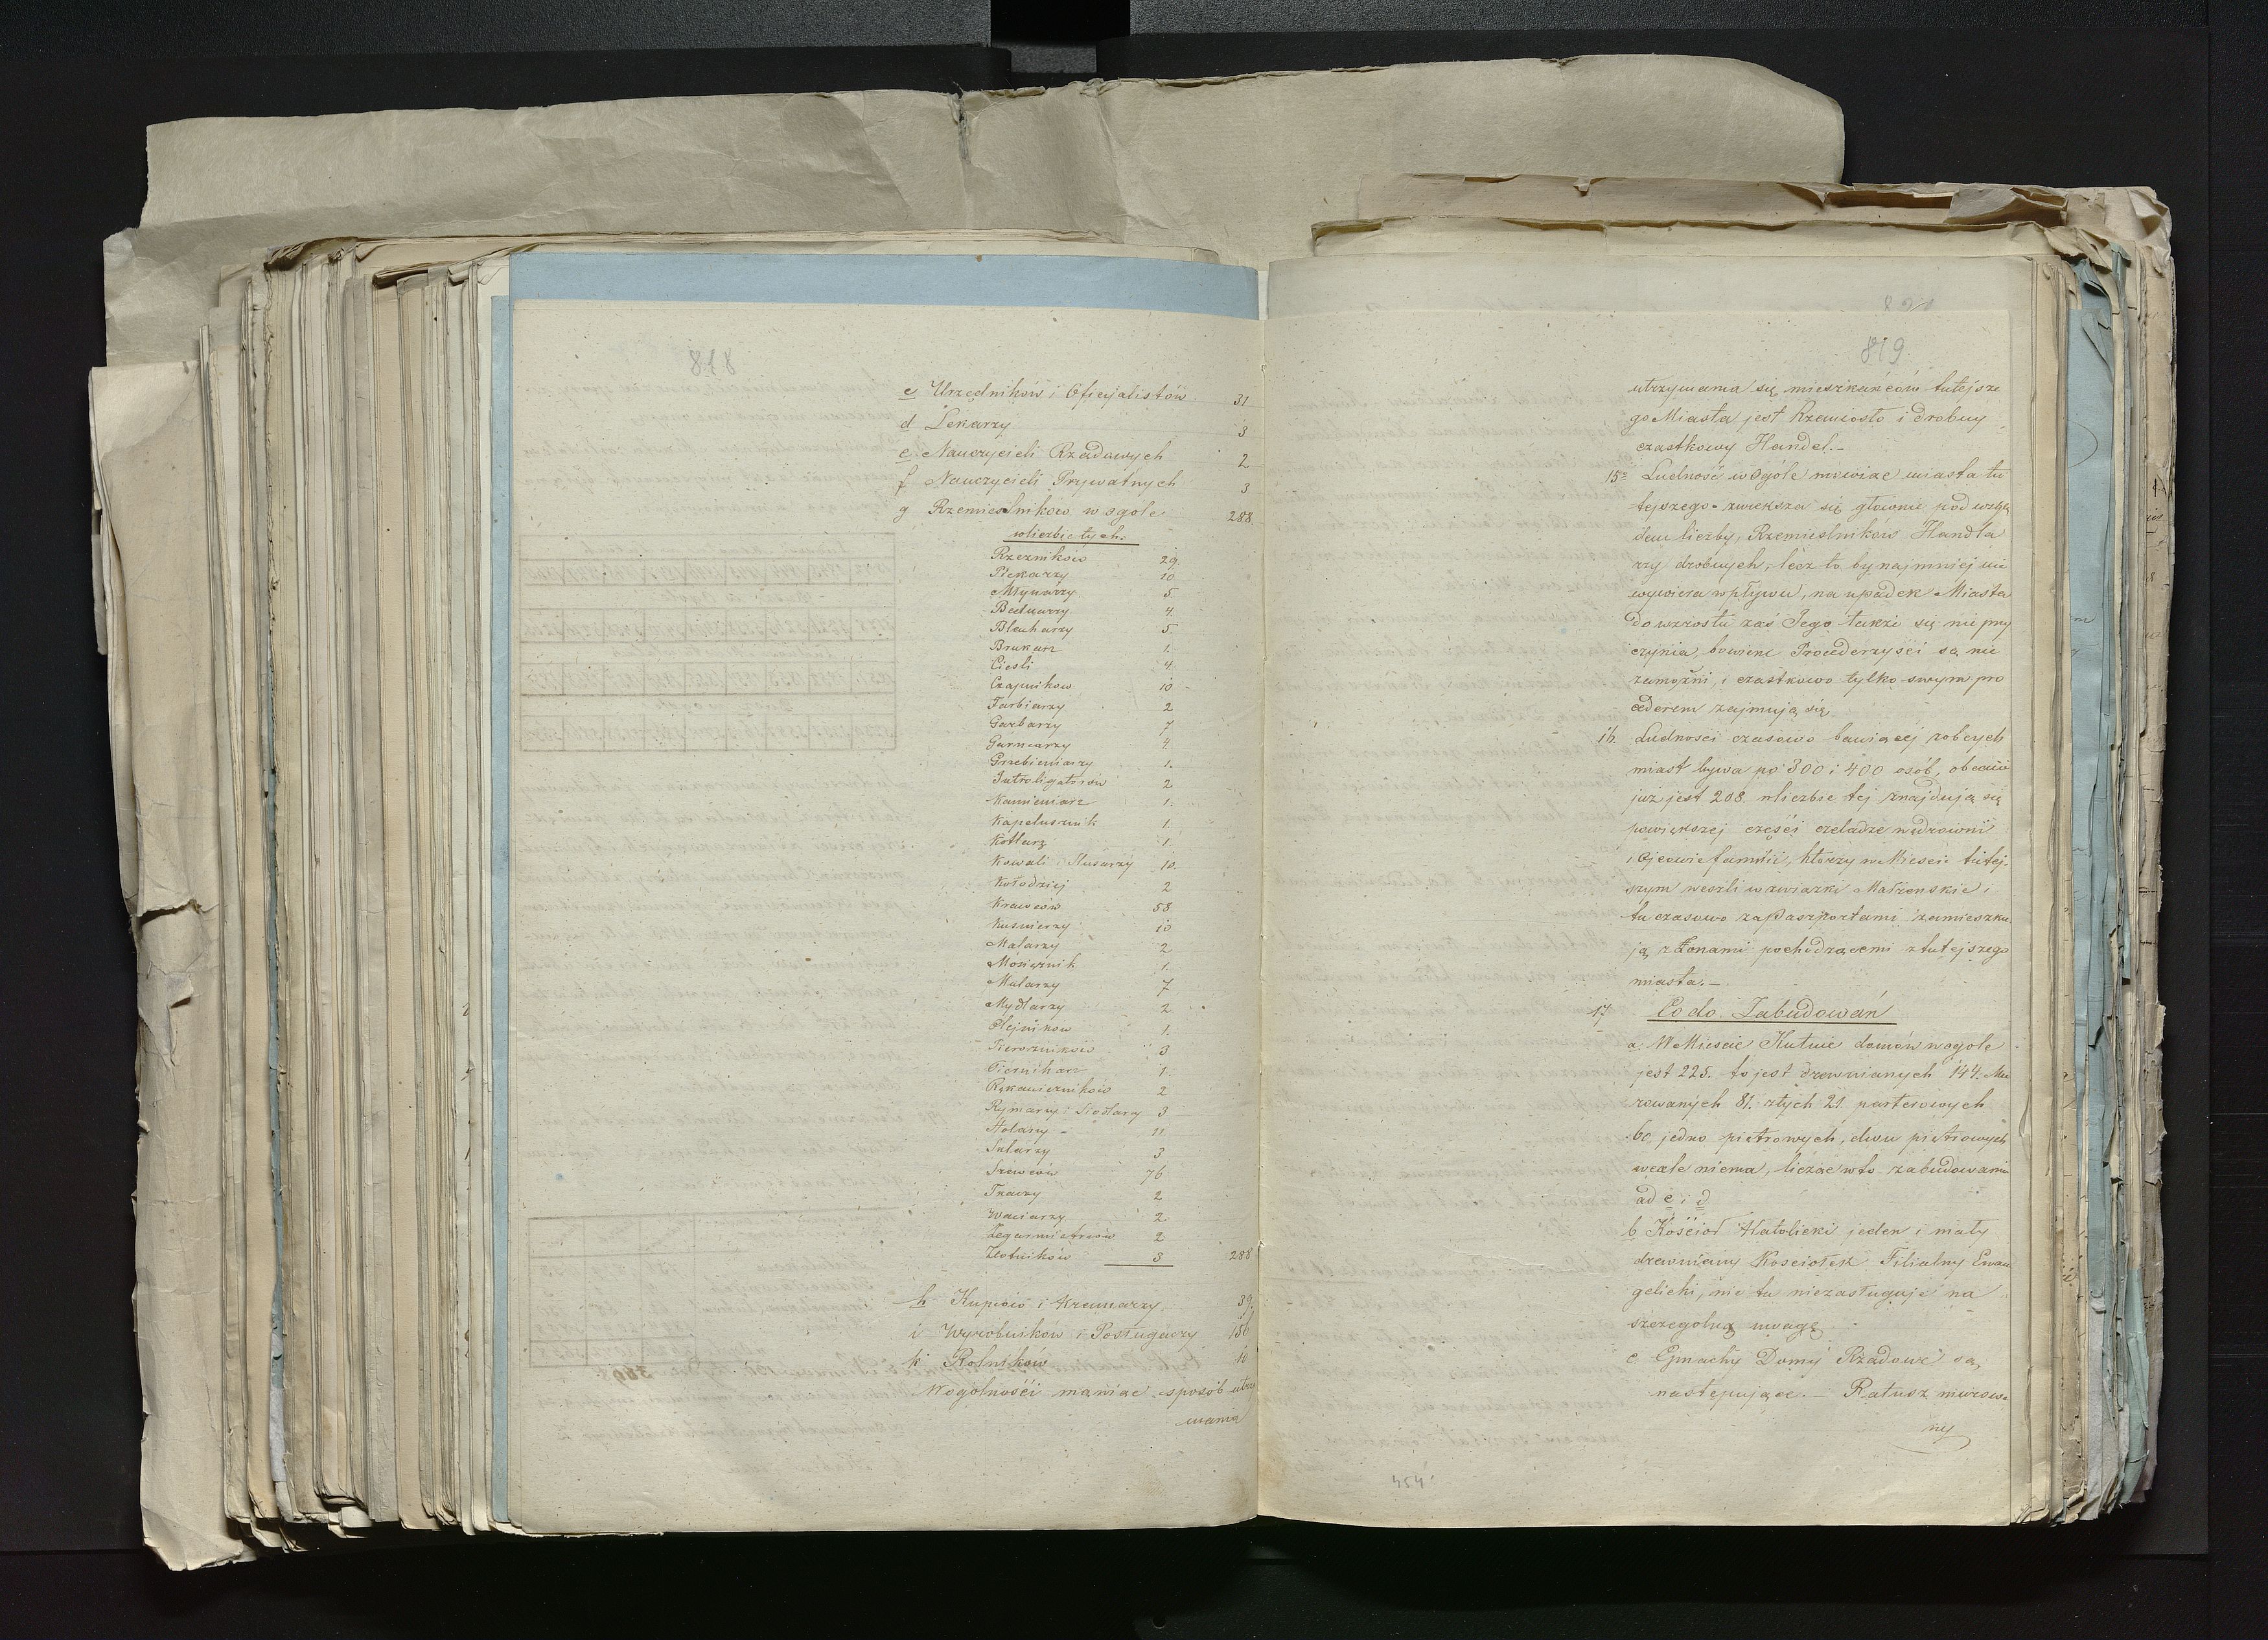 818
c Urzędników i Oficjalistów 31
d Lekarzy 3
e Nauczycieli Rządowych 2
f Nauczycieli Prywatnych 3
g Rzemieslników wogole 288
wliczbie tych:
Rzeznikow 29.
Piekarzy 10
Młynarzy 5.
Bednarzy 4.
Blacharzy 5
Brukarz 1.
Ciesli 4
Czapnikow 10
Farbiarzy 2
Garbarzy 7
Garncarzy 4.
Grzebieniarzy 1.
Introligatorow 2
Kamieniarz 1.
Kapelusznik 1.
Kotlarz 1.
Kowali i Slusarzy 10.
Kołodziej 2
Krawców 58
Kusnierzy 10
Malarzy 2
Mosiężnik 1.
Mularzy 7
Mydlarzy 2
Olejnikow 1.
3
Piernikarz 1.
Rękawicznikow 2
Rymarzy i Siodlarzy 3
Stolarzy 11
3
Szewców 76
Tkaczy 2
Waciarzy 2
Zegarmistrzów 2
Złotników 3 288
h Kupców i Kramarzy 39.
i Wyrobników i Posługaczy 156
k Rolników 10
Wogolności mówiąc sposób utrzy
mania
821
819
utrzymania się mieszkańców tutejsze
go Miasta jest Rzemiosło i drobny
cząstkowy Handel.–
15 Ludność wogóle mówiąc miasta tu
tejszego zwiększa się głownie pod wzglę
dem liczby, Rzemieslników Handla
rzy drobnych, lecz to bynajmniej nie
wywiera wpływu, na upadek Miasta
do wzrostu zas Jego także się nie przy
czynia, bowiem Procederzyści są nie
zamożni, i cząstkowo tylko swym pro
cederem zajmują się
16. Ludności czasowo bawiącej zobcych
miast bywa po 300 i 400 osób, obecnie
już jest 208. wliczbie tej znajdują się
powiększej części czeladze wędrowni
i Ojcowie familii, którzy w Miescie tutej-
szym weszli w związki Małżenskie i
tu czasowo zaPaszportami zamieszku
ją zŻonami pochodzącemi ztutejszego
miasta.–
17 Co do Zabudowań
a. W Miescie Kutnie domów wogole
jest 225. to jest drewnianych 144. Mu
rowanych 81. ztych 21. parterowych
60 jedno piętrowych, dwu piętrowych
wcale niema, licząc wto zabudowania
ad c i d
b Kościoł Katolicki jeden i mały
drewniany Kosciołek Filialny Ewan
gelicki, nic tu niezasługuje na
szczegolną uwagę
c Gmachy Domy Rządowe są
następujące.– Ratusz murowa-
ny
454